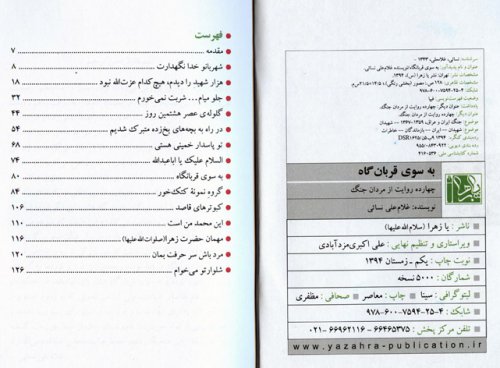 فهرست
مقدمه ۷
شهربانو خدا نگهدارت ۸
هزار شهید را دیدم، هیچ‌کدام عزت‌الله نبود ۱۸
جلو میام... شربت نمی‌خورم ۳۲
گلوله‌ی عصر هشتمین روز ۴۴
در راه به بچه‌های یخ‌زده متبرک شدیم ۵۴
تو پاسدار خمینی هستی ۶۸
السلام علیک یا اباعبدالله ۷۴
به سوی قربانگاه ۸۰
گروه نمونۀ کتک‌خور ۸۴
کبوترهای قاصد ۱۰۶
این محمد من است ۱۱۰
مهمان حضرت زهرا(صلوات‌الله‌علیها) ۱۱۶
مرد باش سر حرفت بمان ۱۲۰
شلوار تو می‌خوام ۱۲۶
سرشناسه: نسائی، غلامعلی، ۱۳۴۳
عنوان و نام پدیدآور: به سوی قربانگاه/نویسنده غلام‌علی نسائی.
مشخصات نشر: تهران: نشر یا زهرا (س)، ۱۳۹۴.
مشخصات ظاهری: ۱۲۸ ص: مصور (بخشی رنگی)؛ ۱۴/۵×۲۱/۵ س‌م.
شابک: ۹۷۸-۶۰۰-۷۵۹۴-۲۵-۴
وضعیت فهرست‌نویسی: فیپا
یادداشت: عنوان دیگر: چهارده روایت از مردان جنگ.
عنوان دیگر: چهارده روایت از مردان جنگ.
موضوع: جنگ ایران و عراق، ۱۳۵۹-۱۳۶۷ -- شهیدان
موضوع: شهیدان -- ایران -- بازماندگان -- خاطرات
رده‌بندی دیویی: ۹۵۵/۰۸۴۳۰۹۲۲
به سوی قربان‌گاه
چهارده روایت از مردان جنگ
نویسنده: غلام‌علی نسائی
ناشر: یا زهرا (سلام‌الله‌علیها)
ویراستاری و تنظیم نهایی: علی اکبری‌مزدآبادی
نوبت چاپ: یکم - زمستان ۱۳۹۴
شمارگان: ۵۰۰۰ نسخه
لیتوگرافی: سینا چاپ: معاصر صحافی: مظفری
شابک: ۹۷۸-۶۰۰-۷۵۹۴-۲۵-۴
تلفن مرکز پخش: ۶۶۴۶۵۳۷۵ - ۶۶۹۶۲۱۱۶-۰۲۱
www.yazahra-publication.ir